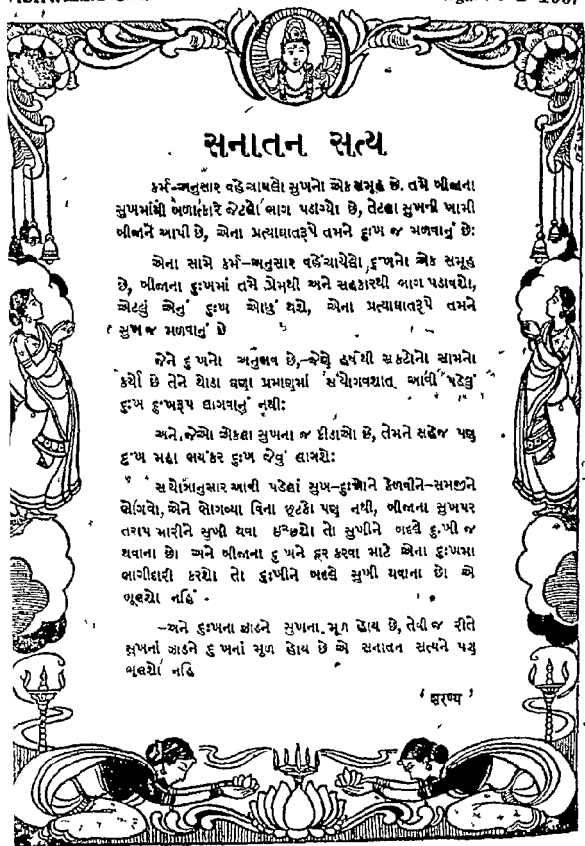 સનાતન સત્ય
કર્મ-અનુસાર વહેંચાયેલો સુખનો એક સમૂહ છે. તમે બીજાના
સુખમાંથી બળાત્કારે જેટલો ભાગ પડાવ્યો છે, તેટલા સુખની ખામી
બીજાને આપી છે, એના પ્રત્યાઘાતરૂપે તમને દુઃખ જ મળવાનું છે:
એના સામે કર્મ-અનુસાર વહેંચાયેલો દુઃખનો એક સમૂહ
છે, બીજાના દુઃખમાં તમે પ્રેમથી અને સહકારથી ભાગ પડાવશો,
એટલું એનું દુઃખ ઓછું થશે, એના પ્રત્યાઘાતરૂપે તમને
સુખ જ મળવાનું છે
જેને દુઃખનો અનુભવ છે,-જેણે હર્ષથી સંકટોનો સામનો
કર્યો છે તેને થોડા ઘણા પ્રમાણમાં સંયોગવશાત્ આવી પડેલું
દુઃખ દુઃખરૂપ લાગવાનું નથી:
અને જેઓ એકલા સુખના જ કીડાઓ છે, તેમને સહેજ પણ
દુઃખ મહા ભયંકર દુઃખ જેવું લાગશે:
સંયોગાનુસાર આવી પડેલાં સુખ-દુઃખને કેળવીને-સમજીને
ભોગવો, એને ભોગવ્યા વિના છૂટકો પણ નથી, બીજાના સુખપર
તરાપ મારીને સુખી થવા ઈચ્છશો તો સુખીને બદલે દુઃખી જ
થવાના છો અને બીજાના દુઃખને દૂર કરવા માટે એના દુઃખમાં
ભાગીદારી કરશો તો દુઃખીને બદલે સુખી થવાના છો એ
ભૂલશો નહિં
-અને દુઃખના ઝાડને સુખના મૂળ હોય છે, તેવી જ રીતે
સુખનાં ઝાડને દુઃખનાં મૂળ હોય છે એ સનાતન સત્યને પણ
ભૂલશો નહિ
'શરણ્ય'